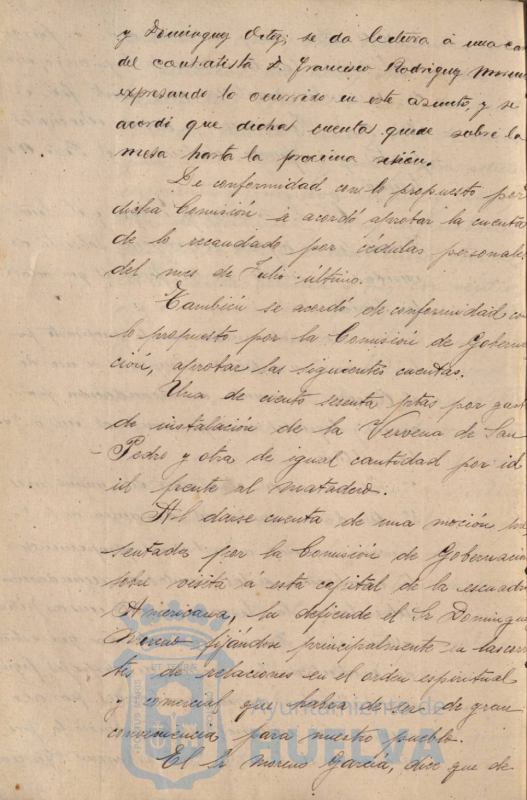 y Dominguez Ortiz; se da lectura á una ca
del contratista D. Francisco Rodriguez Moreno
expresando lo ocurrido en este asunto, y se
acordó que dicha cuenta quede sobre la
mesa hasta la proxima sesión.
De conformidad con lo propuesto por
dicha Comisión se acordó aprobar la cuenta
de lo recaudado por cédulas personales
del mes de Julio último.
También se acordó de conformidad co
lo propuesto por la Comisión de Goberna
ción, aprobar las siguientes cuentas.
Una de ciento sesenta ptas por gast
de instalación de la Vervena de San
Pedro y otra de igual cantidad por id
id frente al matadero.
Al darse cuenta de una moción pre
sentada por la Comisión de Gobernación
sobre visita á esta capital de la escuadra
Americana, la defiende el Sr Dominguez
fijándose principalmente en las cor
tes de relaciones en el orden espiritual
y comercial que habia de ser de gran
conveniencia para nuestro pueblo.
El Sr Moreno García, dice que de
Ayuntamiento de
HUELVA